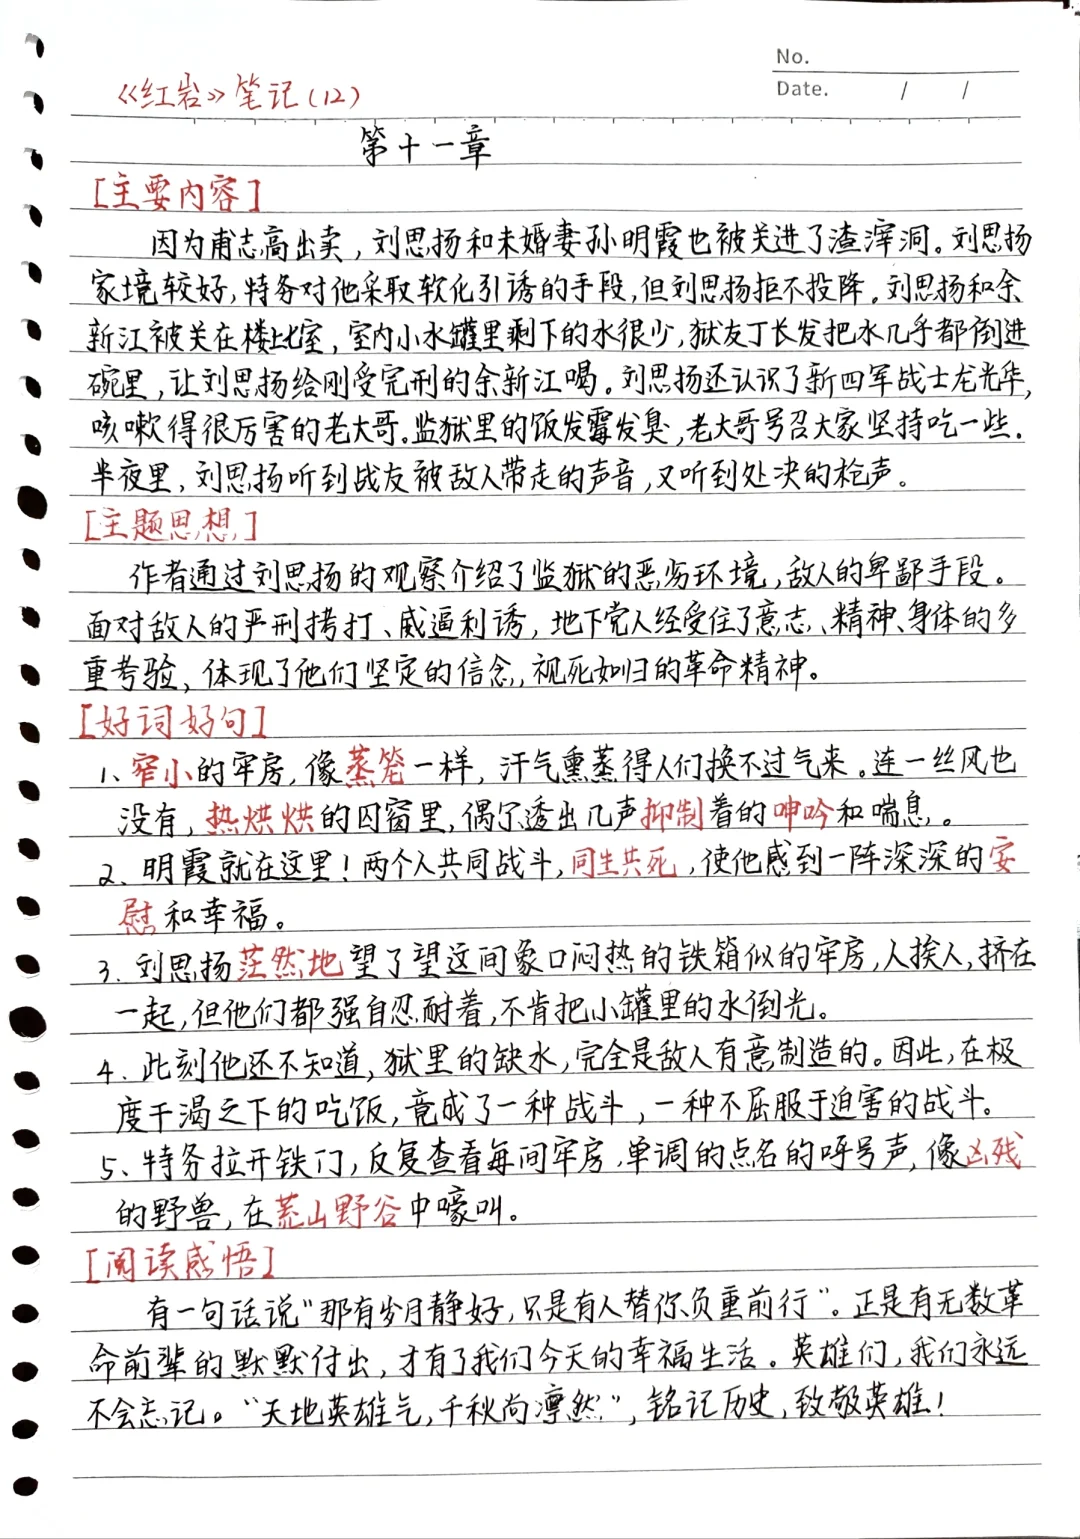 No.
Date.    /    /
《红岩》笔记(12)
第十一章
[主要内容]
因为甫志高出卖，刘思扬和未婚妻孙明霞也被关进了渣滓洞。刘思扬
家境较好，特务对他采取软化引诱的手段，但刘思扬拒不投降。刘思扬和余
新江被关在楼上七室，室内小水罐里剩下的水很少，狱友丁长发把水几乎都倒进
碗里，让刘思扬给刚受完刑的余新江喝。刘思扬还认识了新四军战士龙光华，
咳嗽得很厉害的老大哥。监狱里的饭发霉发臭，老大哥号召大家坚持吃一些.
半夜里，刘思扬听到战友被敌人带走的声音，又听到处决的枪声。
[主题思想]
作者通过刘思扬的观察介绍了监狱的恶劣环境，敌人的卑鄙手段。
面对敌人的严刑拷打、威逼利诱，地下党人经受住了意志、精神、身体的多
重考验，体现了他们坚定的信念，视死如归的革命精神。
[好词好句]
1、窄小的牢房，像蒸笼一样，汗气熏蒸得人们换不过气来。连一丝风也
没有，热烘烘的囚窗里，偶尔透出几声抑制着的呻吟和喘息。
2、明霞就在这里！两个人共同战斗，同生共死，使他感到一阵深深的安
慰和幸福。
3.刘思扬茫然地望了望这间象口闷热的铁箱似的牢房，人挨人，挤在
一起，但他们都强自忍耐着，不肯把小罐里的水倒光。
4、此刻他还不知道，狱里的缺水，完全是敌人有意制造的。因此，在极
度干渴之下的吃饭，竟成了一种战斗，一种不屈服于迫害的战斗。
5、特务拉开铁门，反复查看每间牢房，单调的点名的呼号声，像凶残
的野兽，在荒山野谷中嚎叫。
[阅读感悟]
有一句话说“那有岁月静好，只是有人替你负重前行”。正是有无数革
命前辈的默默付出，才有了我们今天的幸福生活。英雄们，我们永远
不会忘记。“天地英雄气，千秋尚凛然”，铭记历史，致敬英雄！